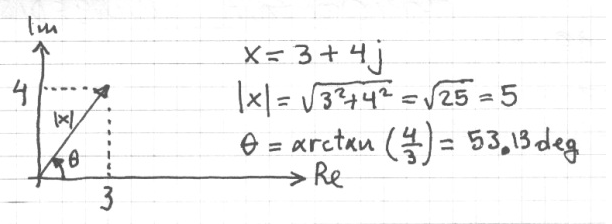 Im
4
|x|
θ
3
Re
x = 3 + 4j
|x| = √3²+4² = √25 = 5
θ = arctan (4/3) = 53.13 deg